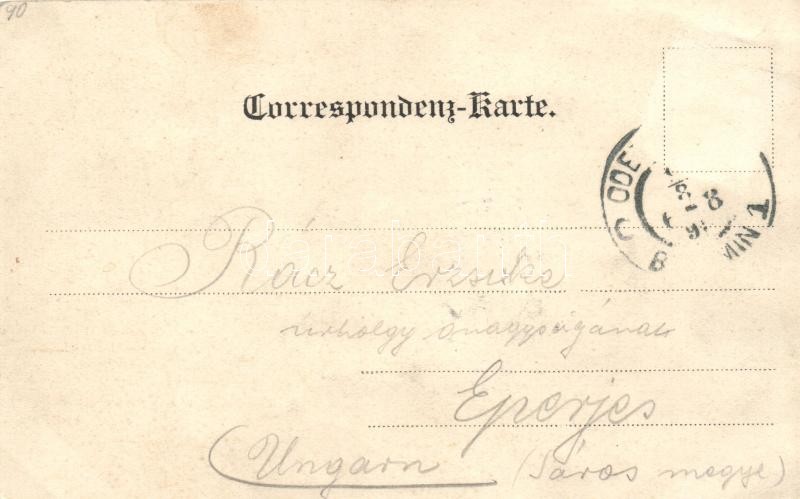 90
Correspondenz-Karte.
ODE
8
Rácz Erzsike
úrhölgy őnagyságának
Eperjes
Ungarn (Sáros megye)